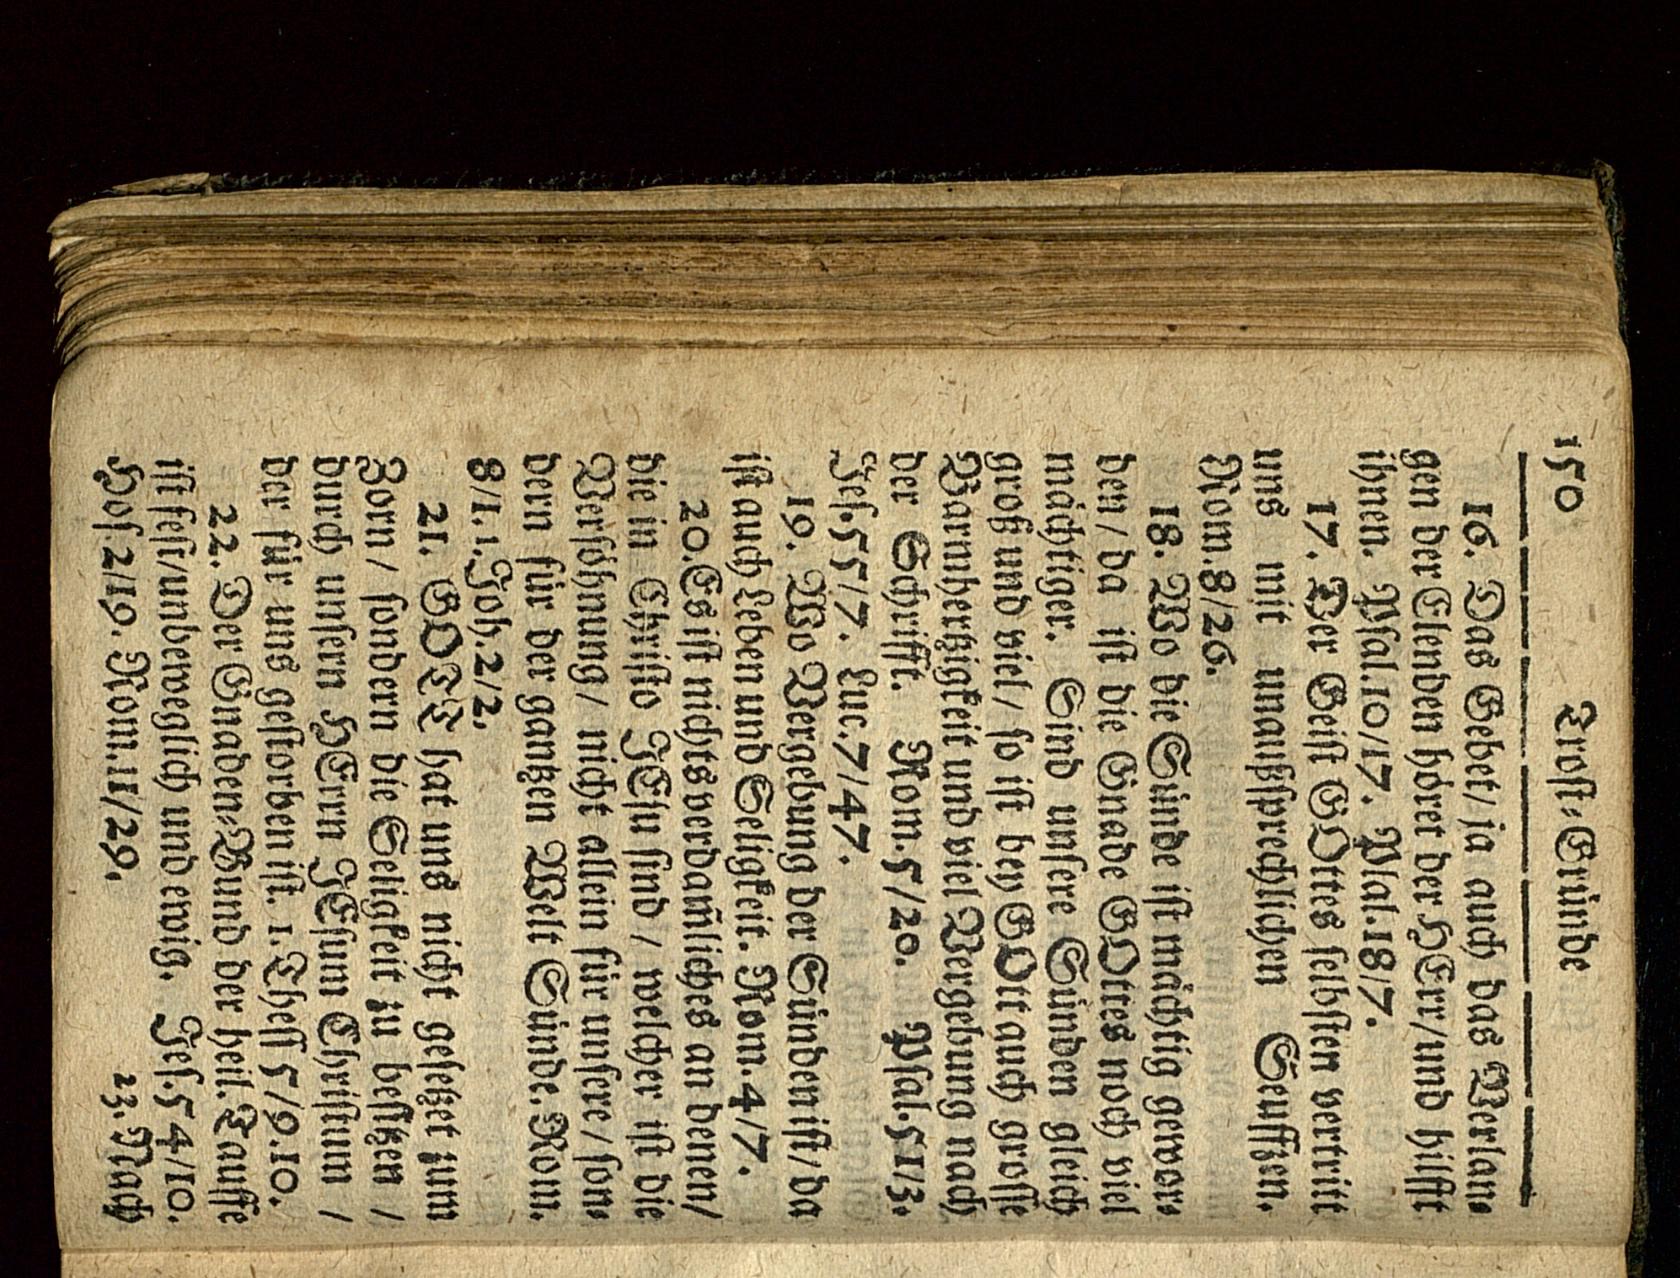 150 Trost-Gründe
16. Das Gebet/ ja auch das Verlan-
gen der Elenden höret der HErr/ und hilfft
ihnen. Psal. 10/17. Psal. 18/7.
17. Der Geist GOttes selbsten vertritt
uns mit unaußsprechlichen Seufftzen.
Rom. 8/26.
18. Wo die Sünde ist mächtig gewor-
den/ da ist die Gnade GOttes noch viel
mächtiger. Sind unsere Sünden gleich
groß und viel/ so ist bey GOtt auch grosse
Barmhertzigkeit und viel Vergebung nach
der Schrifft. Rom. 5/20. Psal. 51/3.
Jes. 55/7. Luc. 7/47.
19. Wo Vergebung der Sünden ist/ da
ist auch Leben und Seligkeit. Rom. 4/7.
20. Es ist nichts verdam̃liches an denen/
die in Christo JEsu sind/ welcher ist die
Versöhnung/ nicht allein für unsere/ son-
dern für der gantzen Welt Sünde. Rom.
8/1. 1. Joh. 2/2.
21. GOTT hat uns nicht gesetzet zum
Zorn/ sondern die Seligkeit zu besitzen/
durch unsern HErrn JEsum Christum/
der für uns gestorben ist. 1. Thess 5/9.10.
22. Der Gnaden-Bund der heil. Tauffe
ist fest/ unbeweglich und ewig. Jes. 54/10.
Hos. 2/19. Rom. 11/29.
23. Nach